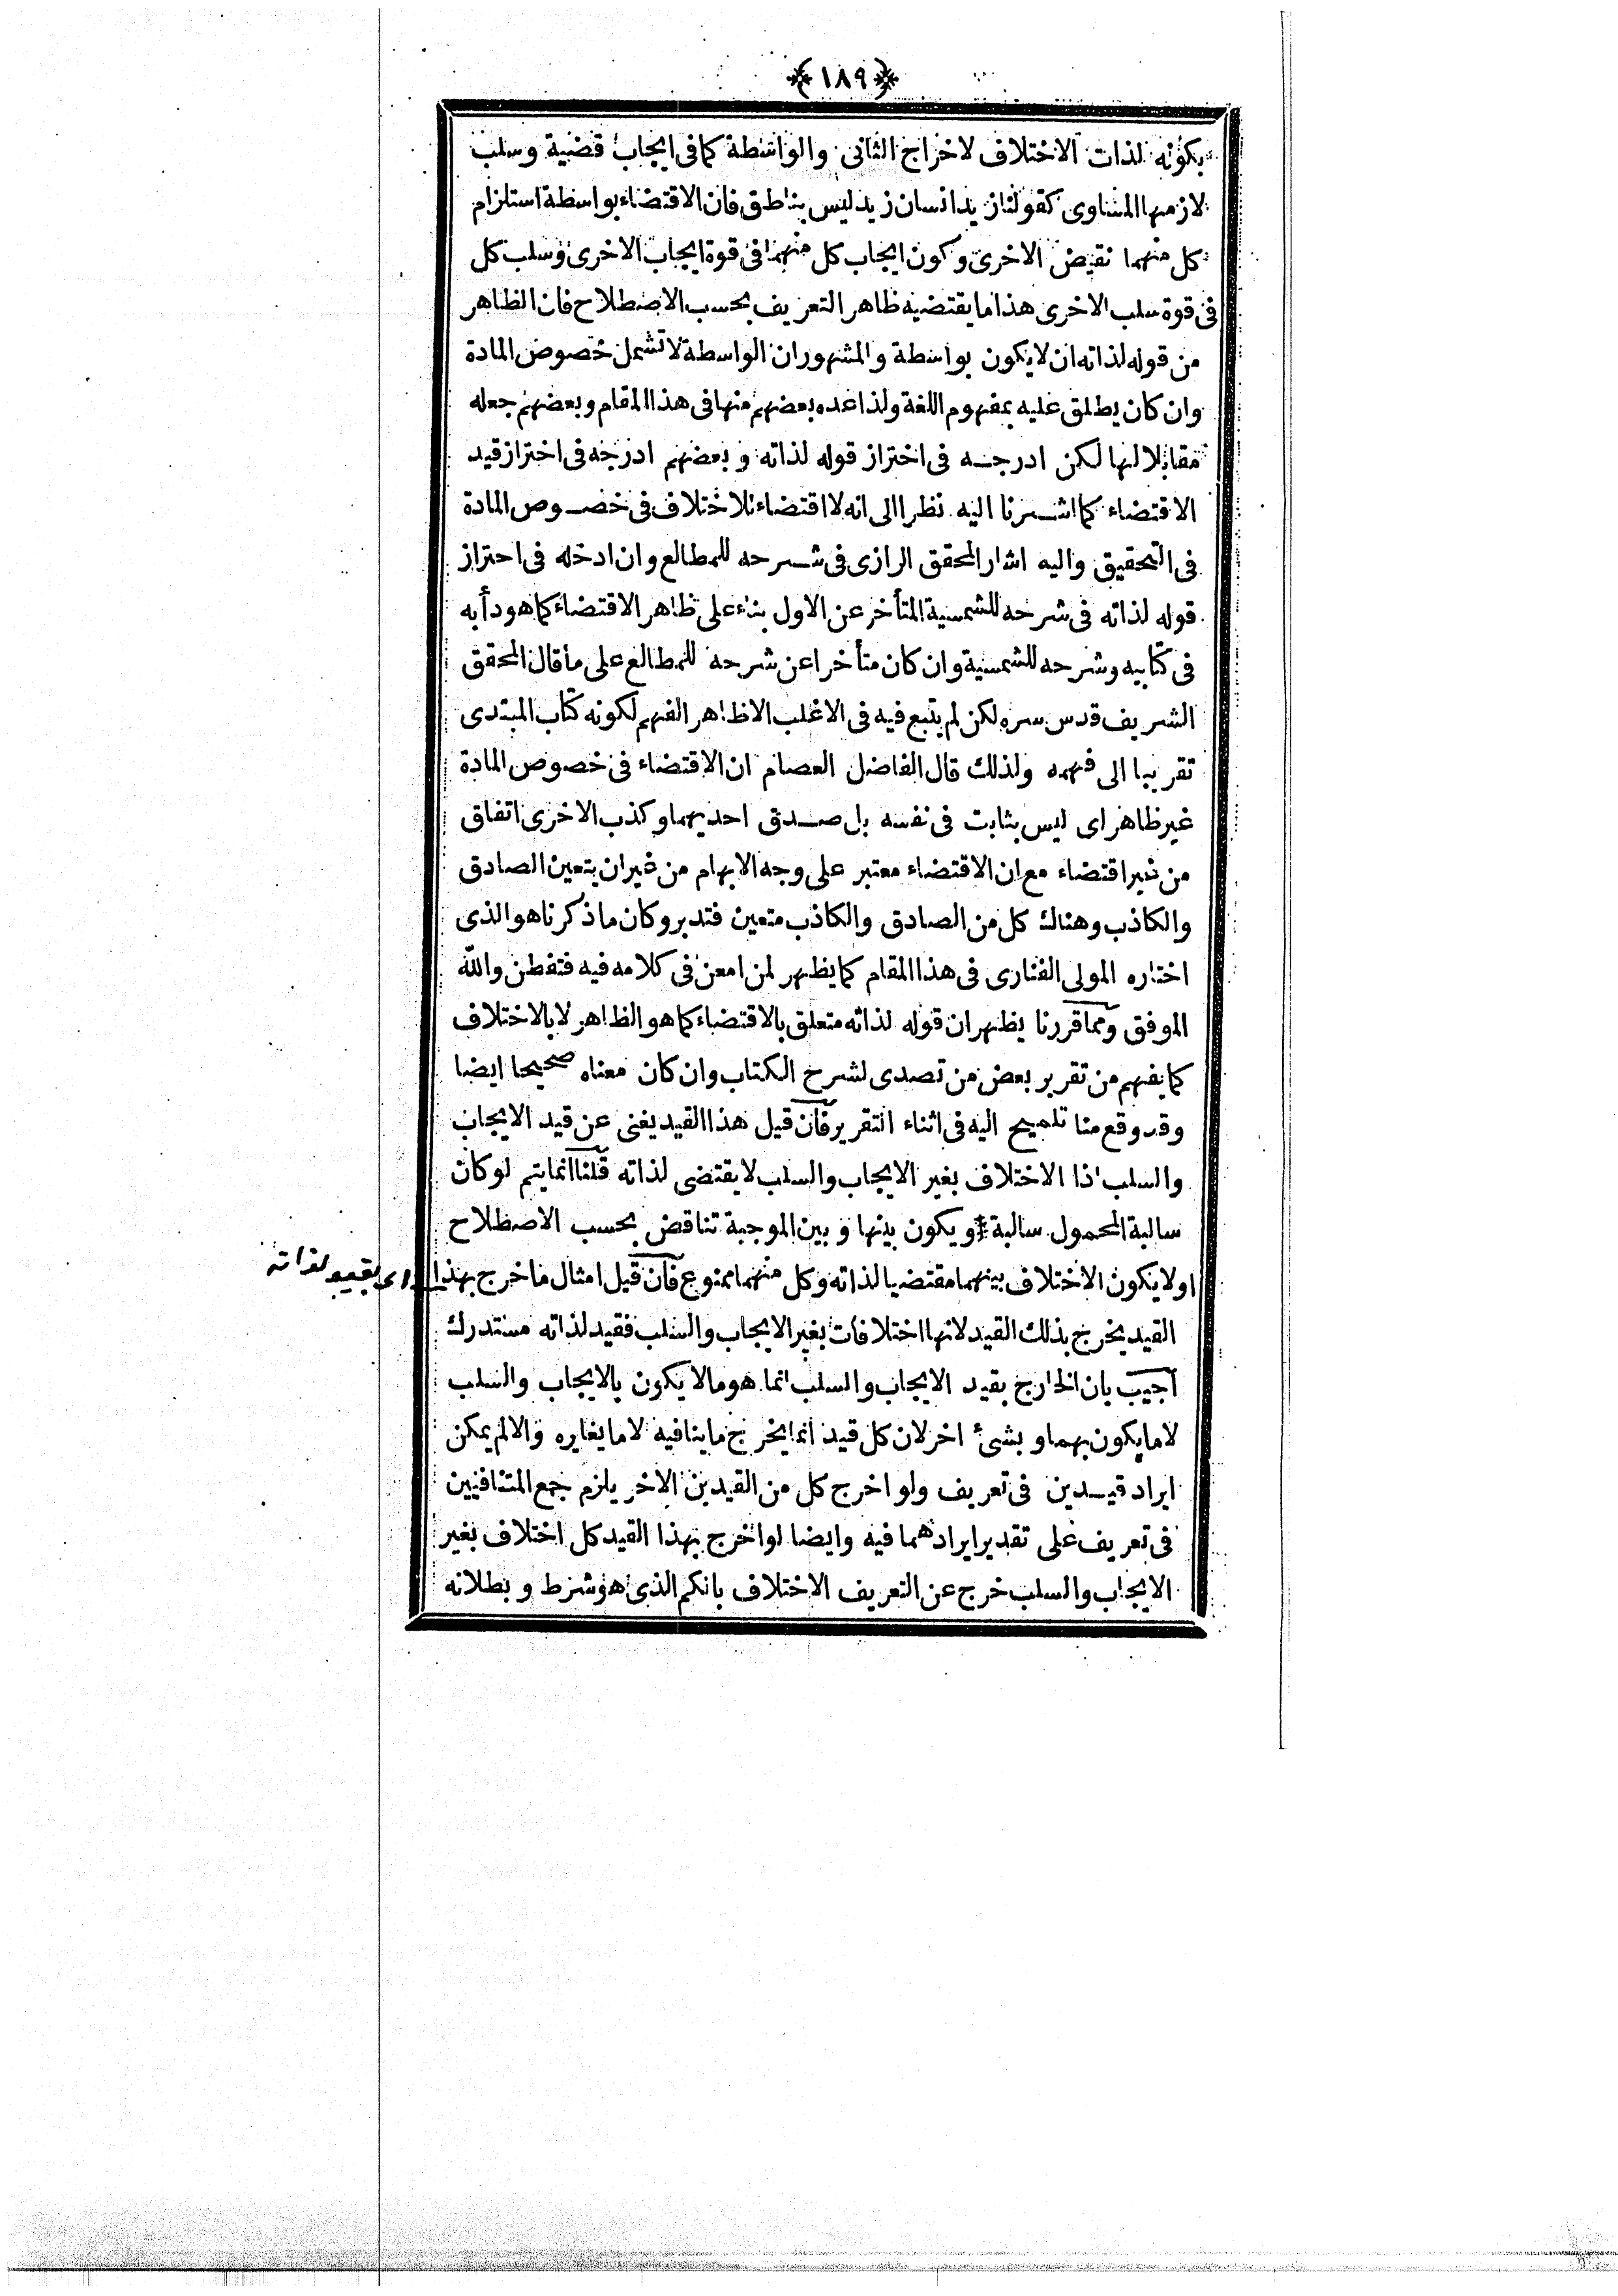 ﴿١٨٩﴾
بكونه لذات الاختلاف لاخراج الثانى والواسطة كما فى ايجاب قضية وسلب
لازمها المساوى كقولنا زيد انسان زيد ليس بناطق فان الاقتضاء بواسطة استلزام
كل منهما نقيض الاخرى وكون ايجاب كل منهما فى قوة ايجاب الاخرى وسلب كل
فى قوة سلب الاخرى هذا ما يقتضيه ظاهر التعريف بحسب الاصطلاح فان الظاهر
من قوله لذاته ان لا يكون بواسطة والمشهور ان الواسطة لا تشمل خصوص المادة
وان كان يطلق عليه بمفهوم اللغة ولذا عده بعضهم منها فى هذا المقام وبعضهم جعله
مقابلا لها لكن ادرجه فى احتراز قوله لذاته و بعضهم ادرجه فى احتراز قيد
الاقتضاء كما اشرنا اليه نظرا الى انه لا اقتضاء للاختلاف فى خصوص المادة
فى التحقيق واليه اشار المحقق الرازى فى شرحه للمطالع وان ادخله فى احتراز
قوله لذاته فى شرحه للشمسية المتأخر عن الاول بناء على ظاهر الاقتضاء كما هو دأبه
فى كتابيه وشرحه للشمسية وان كان متأخرا عن شرحه للمطالع على ما قال المحقق
الشريف قدس سره لكن لم يتبع فيه فى الاغلب الا ظاهر الفهم لكونه كتاب المبتدى
تقريبا الى فهمه ولذلك قال الفاضل العصام ان الاقتضاء فى خصوص المادة
غير ظاهر اى ليس بثابت فى نفسه بل صدق احديهما وكذب الاخرى اتفاق
من غير اقتضاء مع ان الاقتضاء معتبر على وجه الابهام من غير ان يتعين الصادق
والكاذب وهناك كل من الصادق والكاذب متعين فتدبر وكان ما ذكرنا هو الذى
اختاره المولى الفنارى فى هذا المقام كما يظهر لمن امعن فى كلامه فيه فتفطن والله
الموفق ومما قررنا يظهر ان قوله لذاته متعلق بالاقتضاء كما هو الظاهر لا بالاختلاف
كما يفهم من تقرير بعض من تصدى لشرح الكتاب وان كان معناه صحيحا ايضا
وقد وقع منا تلميح اليه فى اثناء التقرير فان قيل هذا القيد يغنى عن قيد الايجاب
والسلب اذا الاختلاف بغير الايجاب والسلب لا يقتضى لذاته قلنا انما يتم لو كان
سالبة المحمول سالبة او يكون بينها و بين الموجبة تناقض بحسب الاصطلاح
او لا يكون الاختلاف بينهما مقتضيا لذاته وكل منهما ممنوع فان قيل امثال ما خرج بهذا
اى بقيد لذاته
القيد يخرج بذلك القيد لانها اختلافات بغير الايجاب والسلب فقيد لذاته مستدرك
اجيب بان الخارج بقيد الايجاب والسلب انما هو ما لا يكون بالايجاب والسلب
لا ما يكون بهما و بشئ اخر لان كل قيد انما يخرج ما ينافيه لا ما يغايره والا لم يمكن
ايراد قيدين فى تعريف ولو اخرج كل من القيدين الاخر يلزم جمع المتنافيين
فى تعريف على تقدير ايرادهما فيه وايضا لو اخرج بهذا القيد كل اختلاف بغير
الايجاب والسلب خرج عن التعريف الاختلاف بالكم الذى هو شرط و بطلانه